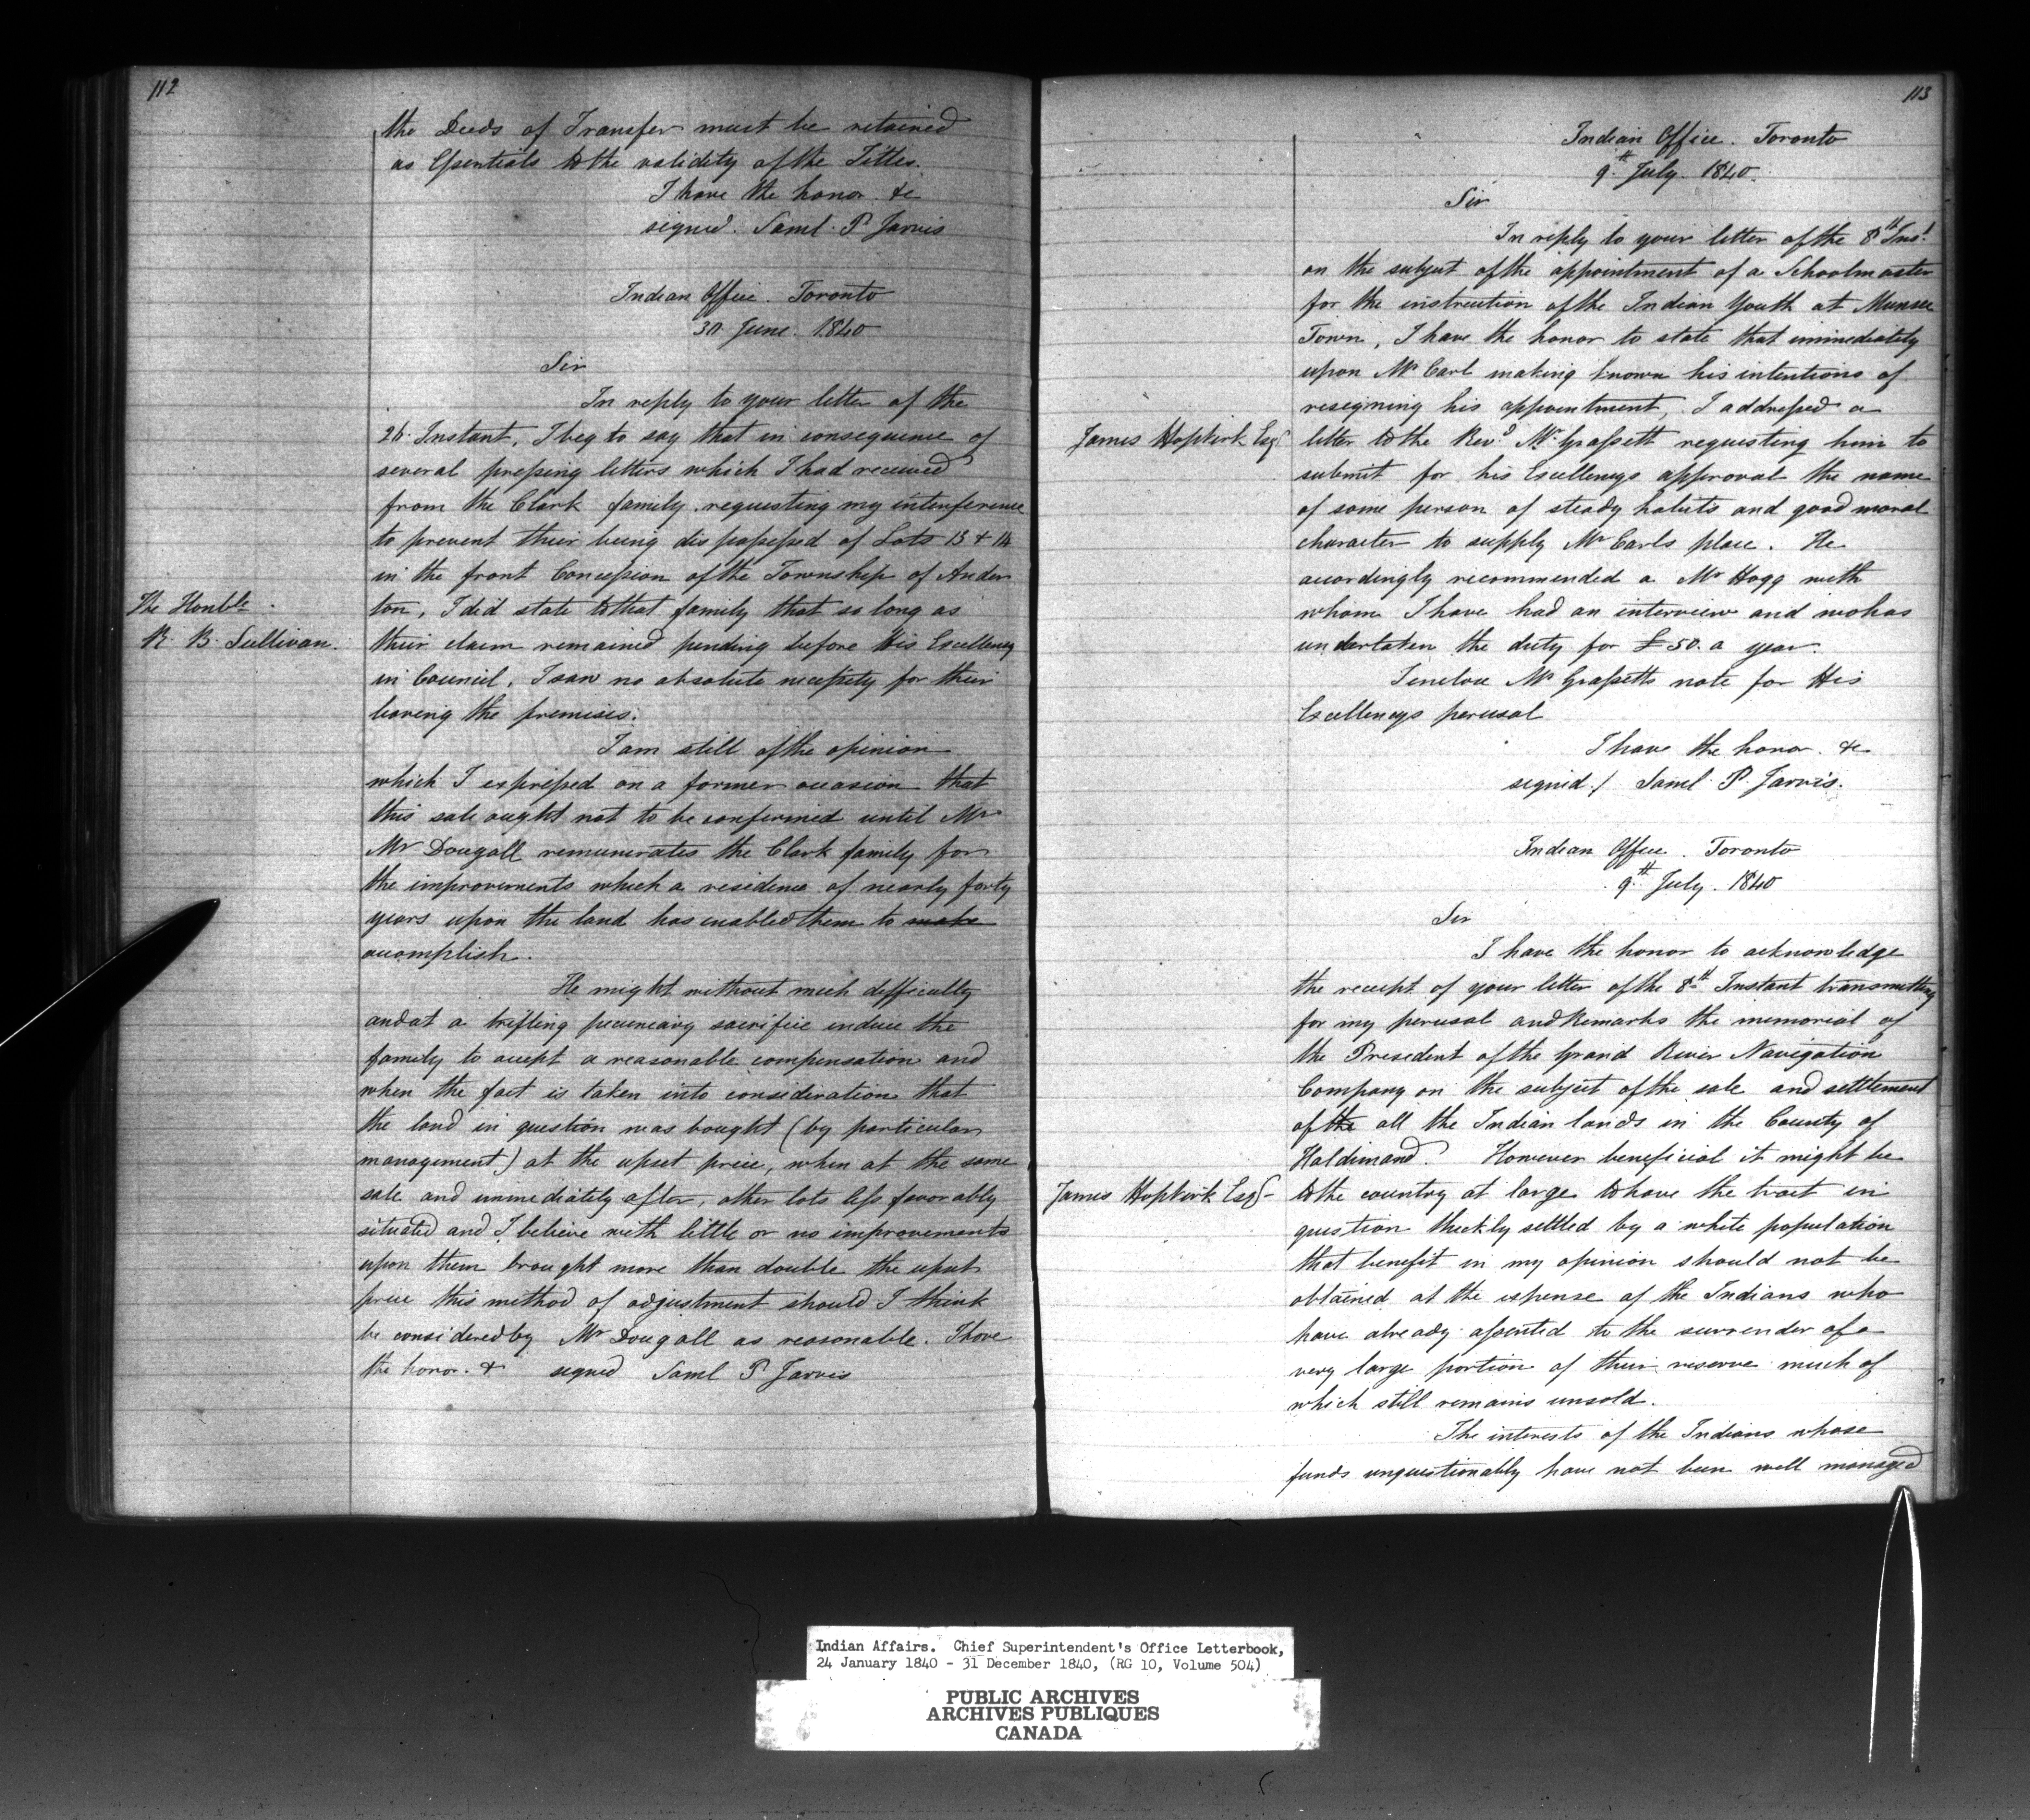 112
the Deeds of Transfer must be retained
as Essentials to the validity of the Titles.
I have the honor &c
signed. Saml. P Jarvis
Indian Office. Toronto
30 June. 1840
Sir
In reply to your letter of the
26. Instant, I beg to say that in consequence of
several pressing letters which I had received
from the Clark family requesting my interference
to prevent their being dispossessed of Lots 13 & 14
in the front Concession of the Township of Ander
ton, I did state to that family that so long as
The Honble.
R. B. Sullivan.
their claim remained pending before His Excellency
in Council, I saw no absolute necessity for their
leaving the premises.
I am still of the opinion
which I expressed on a former occasion that
this sale ought not to be confirmed until Mr
Mc Dougall remunerates the Clark family for
the improvements which a residence of nearly forty
years upon the land has enabled them to make
accomplish.
He might without much difficulty
and at a trifling pecuniary sacrifice induce the
family to accept a reasonable compensation and
when the fact is taken into consideration that
the land in question was bought (by particular
management) at the upset price, when at the same
sale and immediately after, other lots less favorably
situated and I believe with little or no improvements
upon them brought more than double the upset
price this method of adjustment should I think
be considered by Mr Dougall as reasonable. I have
the honor. & signed Saml P Jarvis
113
Indian Office. Toronto
9th July. 1840.
Sir
In reply to your letter of the 8th Inst.
on the subject of the appointment of a Schoolmaster
for the instruction of the Indian Youth at Munsee
Town, I have the honor to state that immediately
upon Mr Carl making known his intentions of
resigning his appointment, I addressed a
James Hopkirk Esqr
letter to the Revd. Mr. Grassett requesting him to
submit for his Excellencys approval the name
of some person of steady habits and good moral
character to supply Mr Carls place. He
accordingly recommended a Mr Hogg with
whom I have had an interview and whohas
undertaken the duty for £50. a year.
I enclose Mr Grassetts note for His
Excellencys perusal
I have the honor. &c
signed / Saml. P. Jarvis.
Indian Office. Toronto
9th July. 1840
Sir
I have the honor to acknowledge
the receipt of your letter of the 8th Instant transmitting
for my perusal and Remarks the memorial of
the President of the Grand River Navigation
Company on the subject of the sale and settlement
of the all the Indian lands in the County of
Haldimand. However beneficial it might be
James Hopkirk Esqr
to the country at large to have the tract in
question thickly settled by a white population
that benefit in my opinion should not be
obtained at the expense of the Indians who
have already assented to the surrender of a
very large portion of their reserve much of
which still remains unsold.
The interests of the Indians whose
funds unquestionably have not been well managed
Indian Affairs. Chief Superintendent's Office Letterbook,
24 January 1840 - 31 December 1840, (RG 10, Volume 504)
PUBLIC ARCHIVES
ARCHIVES PUBLIQUES
CANADA